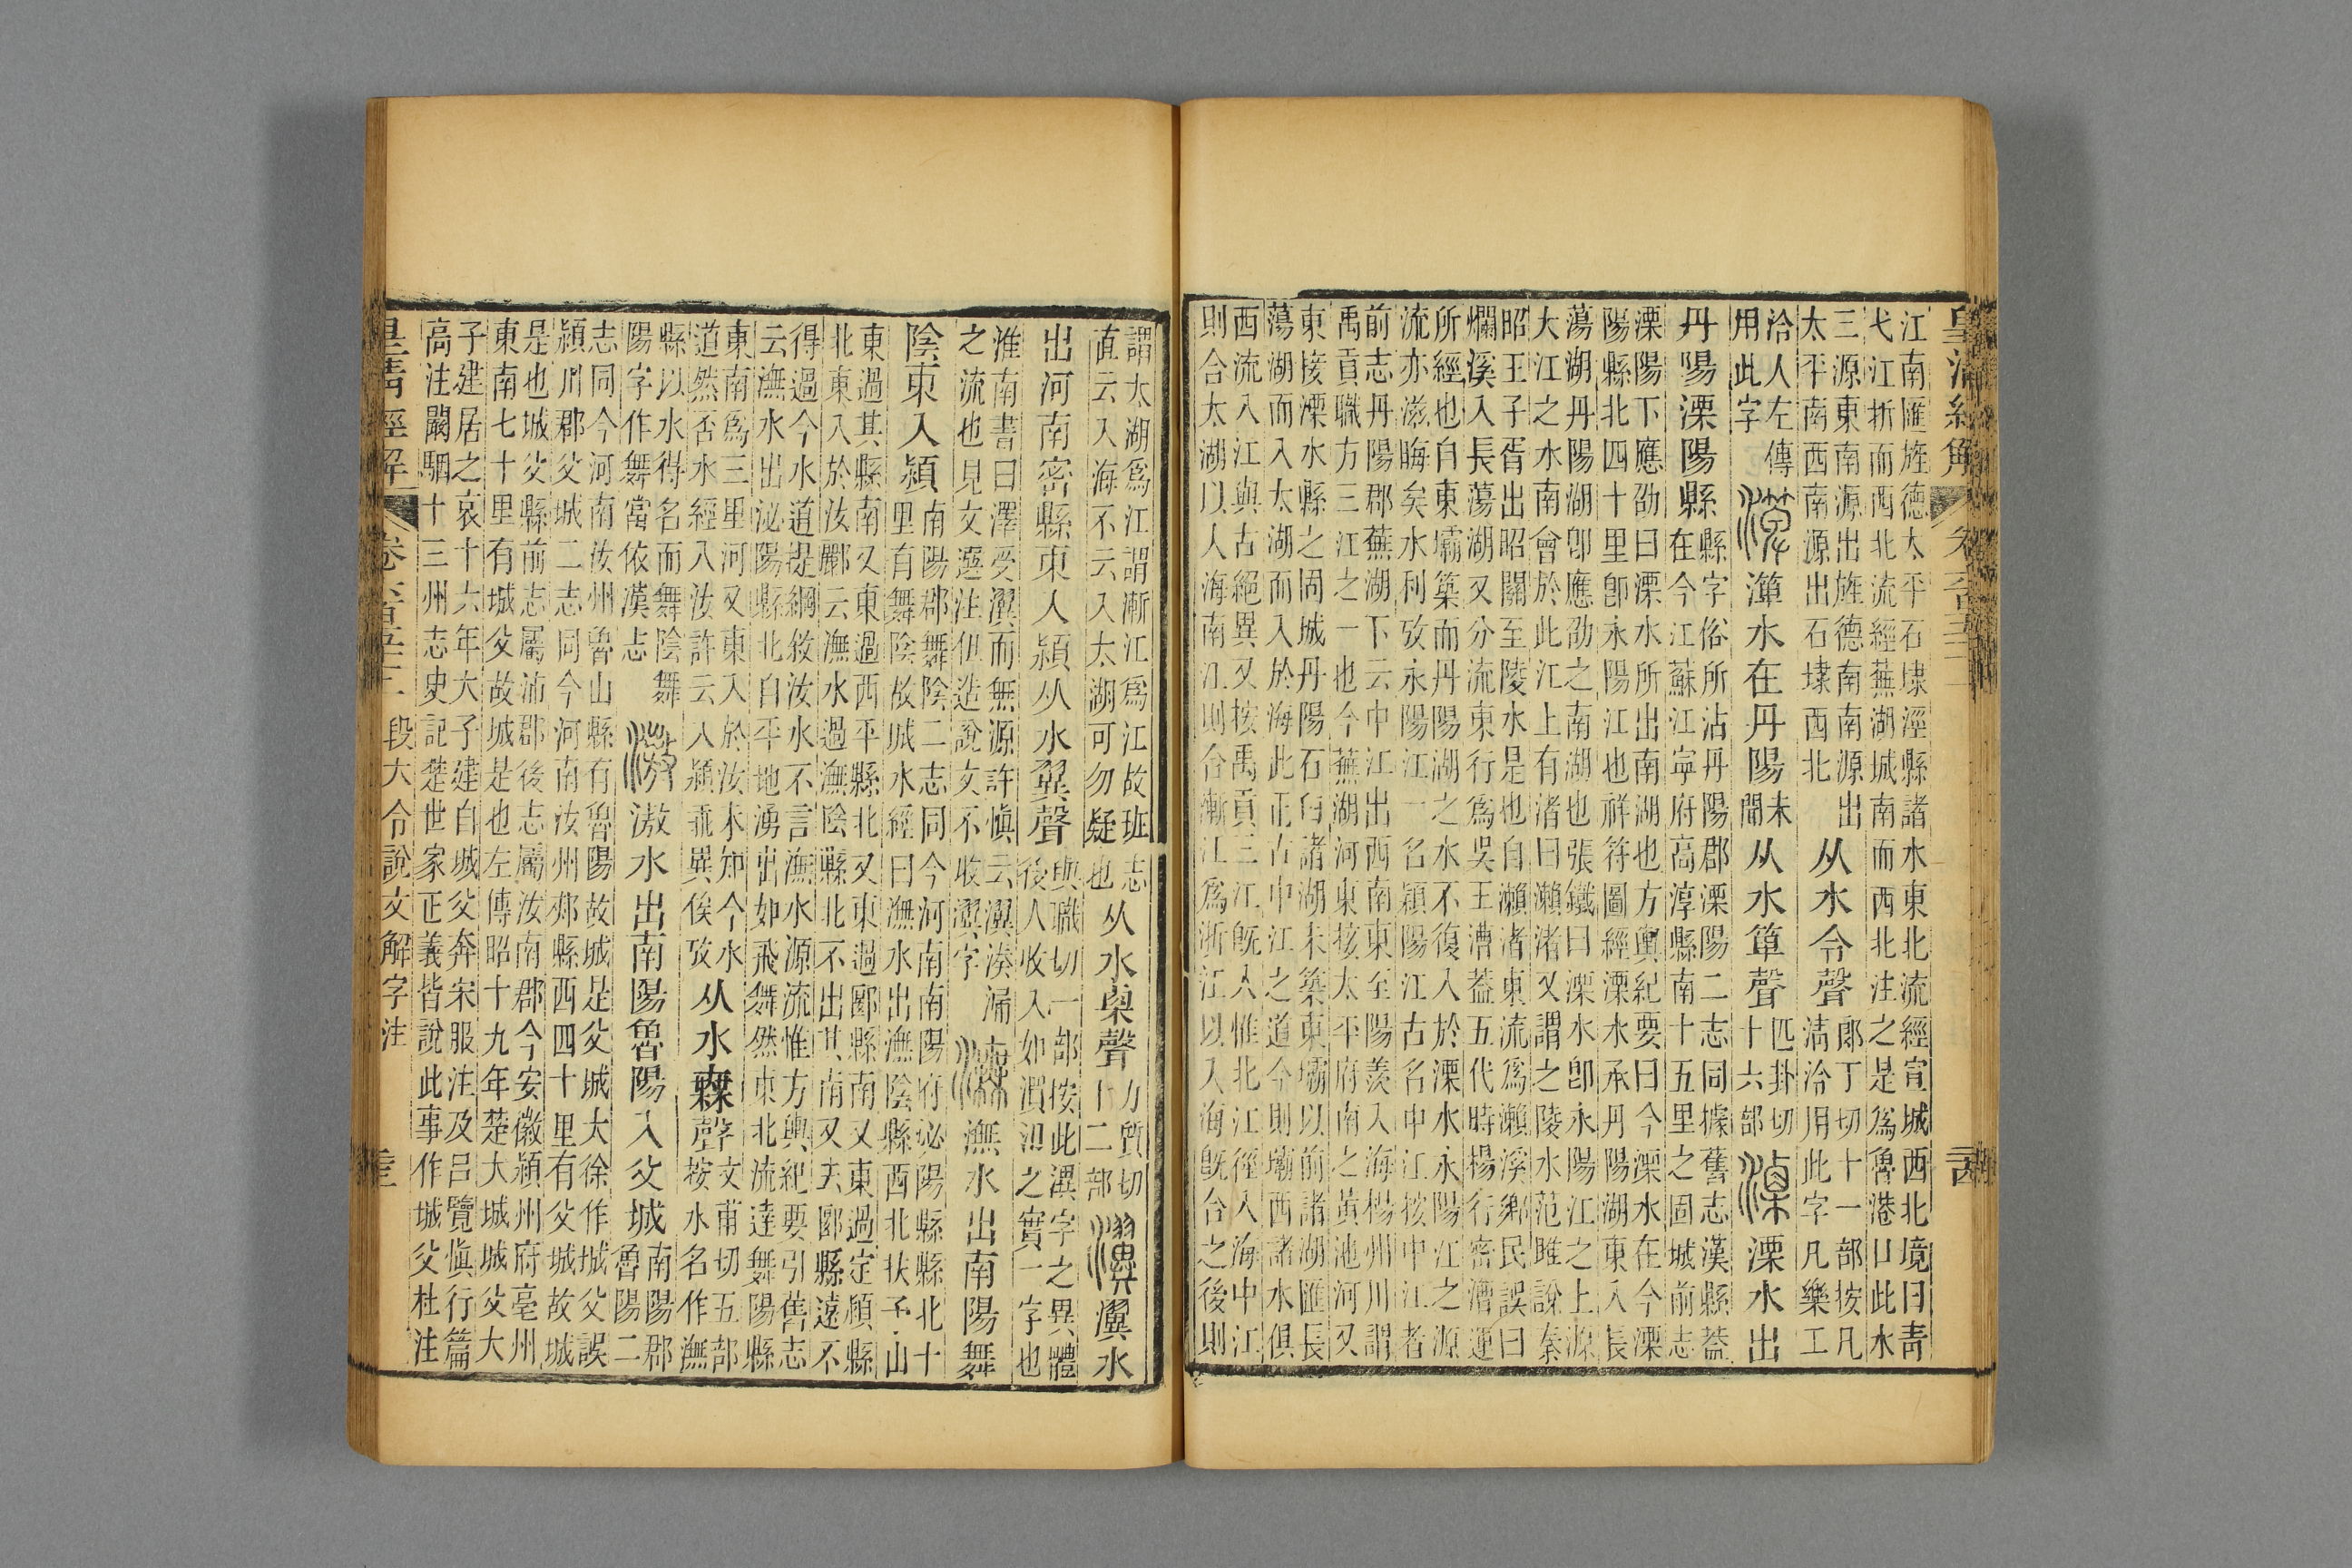 皇清經解
江南匯旌德太平石埭涇縣諸水東北流經宣城西北境曰青
弋江折而西北流經蕪湖城南而西北注之是爲魯港口此水
三源東南源出旌德南南源出
太平南西南源出石埭西北
从水令聲
郎丁切十一部按凡
清泠用此字凡樂工
泠人左傳
用此字
水在丹陽
未
聞
从水箄聲
匹卦切
十六部
溧水出
丹陽溧陽縣
縣字俗所沾丹陽郡溧陽二志同據舊志漢縣葢
在今江蘇江寧府高淳縣南十五里之固城前志
溧陽下應劭曰溧水所出南湖也方輿紀要曰今溧水在今溧
陽縣北四十里卽永陽江也祥符圖經溧水承丹陽湖東入長
蕩湖丹陽湖卽應劭之南湖也張鐵曰溧水卽永陽江之上源
大江之水南會於此江上有渚曰瀨渚又謂之陵水范雎說秦
昭王子胥出昭關至陵水是也自瀨渚東流爲瀨溪鄉民誤曰
爛溪入長蕩湖又分流東行爲吳王漕葢五代時楊行密漕運
所經也自東壩築而丹陽湖之水不復入於溧水永陽江之源
流亦滋晦矣水利攷永陽江一名潁陽江古名中江按中江者
前志丹陽郡蕪湖下云中江出西南東至陽羨入海楊州川謂
禹貢職方三江之一也今蕪湖河東接太平府南之黃池河又
東接溧水縣之固城丹陽石臼諸湖未築東壩以前諸湖匯長
蕩湖而入太湖而入於海此正古中江之道今則壩西諸水俱
西流入江與古絕異又按禹貢三江旣入惟北江徑入海中江
則合太湖以入海南江則合漸江爲浙江以入海旣合之後則
謂太湖爲江謂漸江爲江故班志
直云入海不云入太湖可勿疑也
从水㮚聲
力質切
十二部
瀷水
出河南密縣東入潁从水翼聲
與職切一部按此瀷字之異體
後人收入如溳之實一字也
淮南書曰澤受瀷而無源許愼云瀷湊漏
之流也見文選注但造說文不收瀷字
潕水出南陽舞
陰東入潁
南陽郡舞陰二志同今河南南陽府泌陽縣縣北十
里有舞陰故城水經曰潕水出潕陰縣西北扶予山
東過其縣南又東過西平縣北又東過郾縣南又東過定潁縣
北東入於汝酈云潕水過潕陰縣北不出其南又去郾縣遠不
得過今水道提綱敘汝水不言潕水源流惟方輿紀要引舊志
云潕水出泌陽縣北自平地湧出如飛舞然東北流達舞陽縣
東南爲三里河又東入於汝未知今水
道然否水經入汝許云入潁乖異俟攷
从水𣞣聲
文甫切五部
按水名作潕
縣以水得名而舞陰舞
陽字作舞當依漢志
滶水出南陽魯陽入父城
南陽郡
魯陽二
志同今河南汝州魯山縣有魯陽故城是父城大徐作城父誤
潁川郡父城二志同今河南汝州郟縣西四十里有父城故城
是也城父縣前志屬沛郡後志屬汝南郡今安徽潁州府亳州
東南七十里有城父故城是也左傳昭十九年楚大城城父大
子建居之哀十六年大子建自城父奔宋服注及呂覽愼行篇
高注闞駰十三州志史記楚世家正義皆說此事作城父杜注
皇清經解
段大令說文解字注